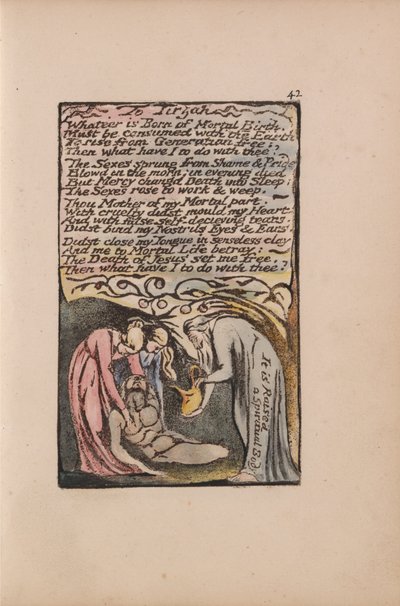 42
To Tirzah
Whateer is Born of Mortal Birth,
Must be consumed with the Earth
To rise from Generation free:
Then what have I to do with thee?
The Sexes sprung from Shame & Pride
Blowd in the morn; in evening died
But Mercy changd Death into Sleep;
The Sexes rose to work & weep.
Thou Mother of my Mortal part.
With cruelty didst mould my Heart.
And with false self-decieving tears.
Didst bind my Nostrils Eyes & Ears.
Didst close my Tongue in senseless clay
And me to Mortal Life betray:
The Death of Jesus set me free,
Then what have I to do with thee?
It is Raised
a Spiritual Body